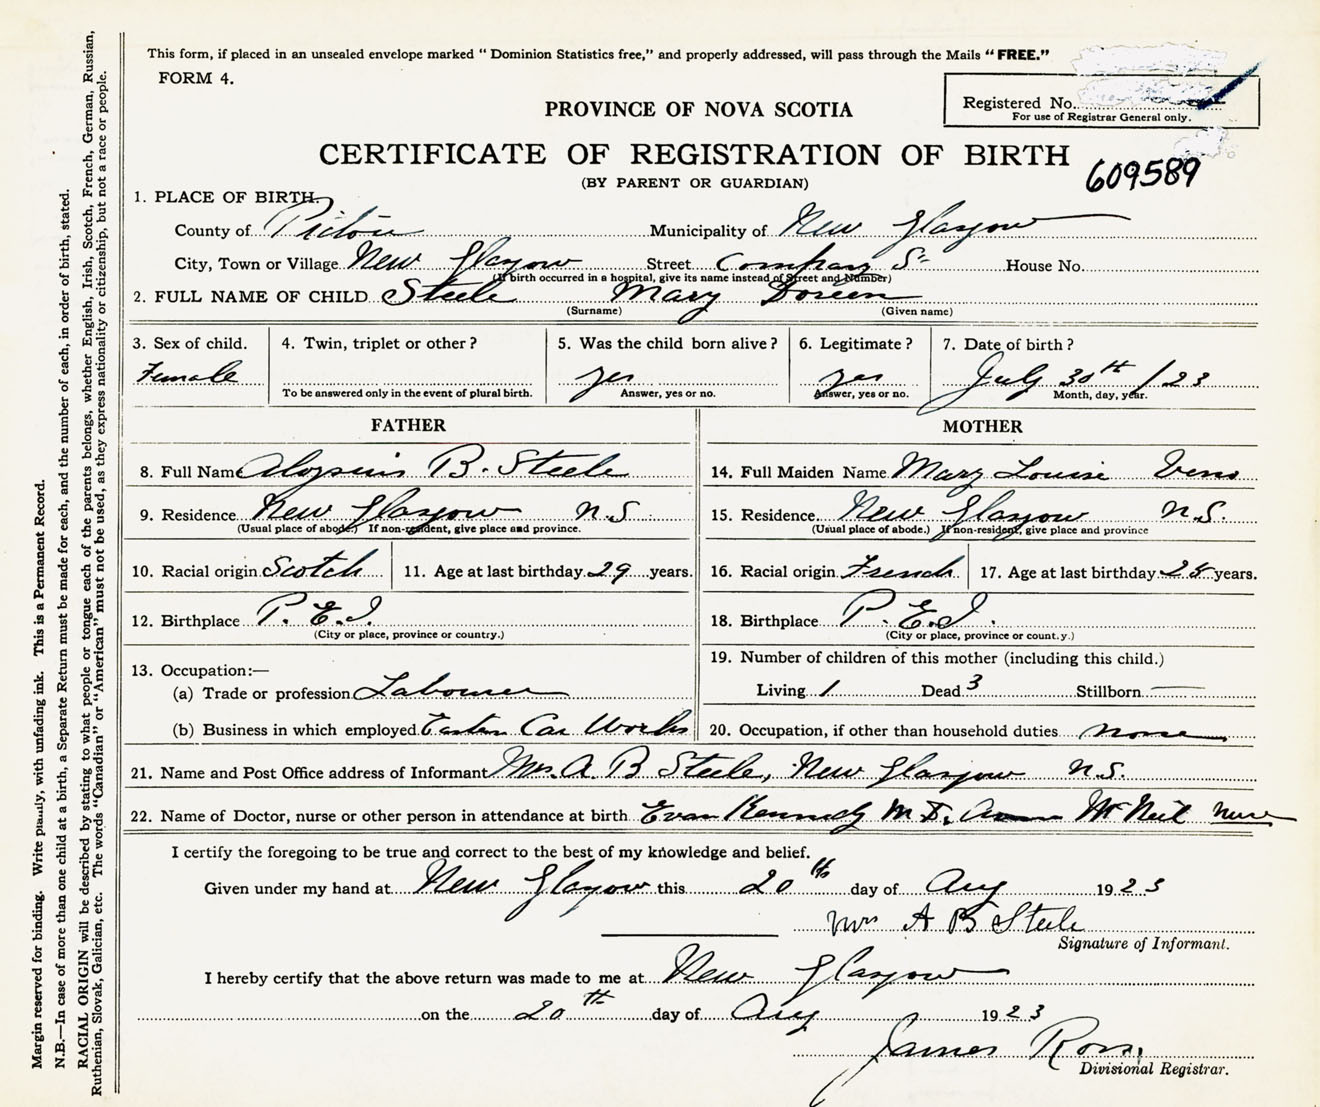 This form, if placed in an unsealed envelope marked "Dominion Statistics free," and properly addressed, will pass through the Mails "FREE."
FORM 4.
Registered No.
For use of Registrar General only.
PROVINCE OF NOVA SCOTIA
CERTIFICATE OF REGISTRATION OF BIRTH
609589
(BY PARENT OR GUARDIAN)
1. PLACE OF BIRTH
County of Pictou Municipality of New Glasgow
City, Town or Village New Glasgow Street Company St. House No.
(If birth occurred in a hospital, give its name instead of Street and Number)
2. FULL NAME OF CHILD Steele Mary Doreen
(Surname) (Given name)
3. Sex of child. 4. Twin, triplet or other? 5. Was the child born alive? 6. Legitimate? 7. Date of birth?
Female yes yes July 30th /23
To be answered only in the event of plural birth. Answer, yes or no. Answer, yes or no. Month, day, year.
FATHER MOTHER
8. Full Name Aloysius B. Steele 14. Full Maiden Name Mary Louise
9. Residence New Glasgow N.S. 15. Residence New Glasgow N.S.
(Usual place of abode.) If non-resident, give place and province. (Usual place of abode.) If non-resident, give place and province
10. Racial origin Scotch 11. Age at last birthday 29 years. 16. Racial origin French 17. Age at last birthday years.
12. Birthplace P.E.I. 18. Birthplace P.E.I.
(City or place, province or country.) (City or place, province or country.)
13. Occupation:— 19. Number of children of this mother (including this child.)
(a) Trade or profession Labourer Living 1 Dead 3 Stillborn —
(b) Business in which employed Eastern Car Works 20. Occupation, if other than household duties none
21. Name and Post Office address of Informant Mrs. A. B Steele, New Glasgow N.S.
22. Name of Doctor, nurse or other person in attendance at birth Evan Kennedy M.D. McNeil Nurse
I certify the foregoing to be true and correct to the best of my knowledge and belief.
Given under my hand at New Glasgow this 20th day of Aug 1923
Mrs A B Steele
Signature of Informant.
I hereby certify that the above return was made to me at New Glasgow
on the 20th day of Aug 1923
James Ross
Divisional Registrar.
Margin reserved for binding. Write plainly, with unfading ink. This is a Permanent Record.
N.B.—In case of more than one child at a birth, a Separate Return must be made for each, and the number of each, in order of birth, stated.
RACIAL ORIGIN will be described by stating to what people or tongue each of the parents belongs, whether English, Irish, Scotch, French, German, Russian,
Ruthenian, Slovak, Galician, etc. The words "Canadian" or "American" must not be used, as they express nationality or citizenship, but not a race or people.